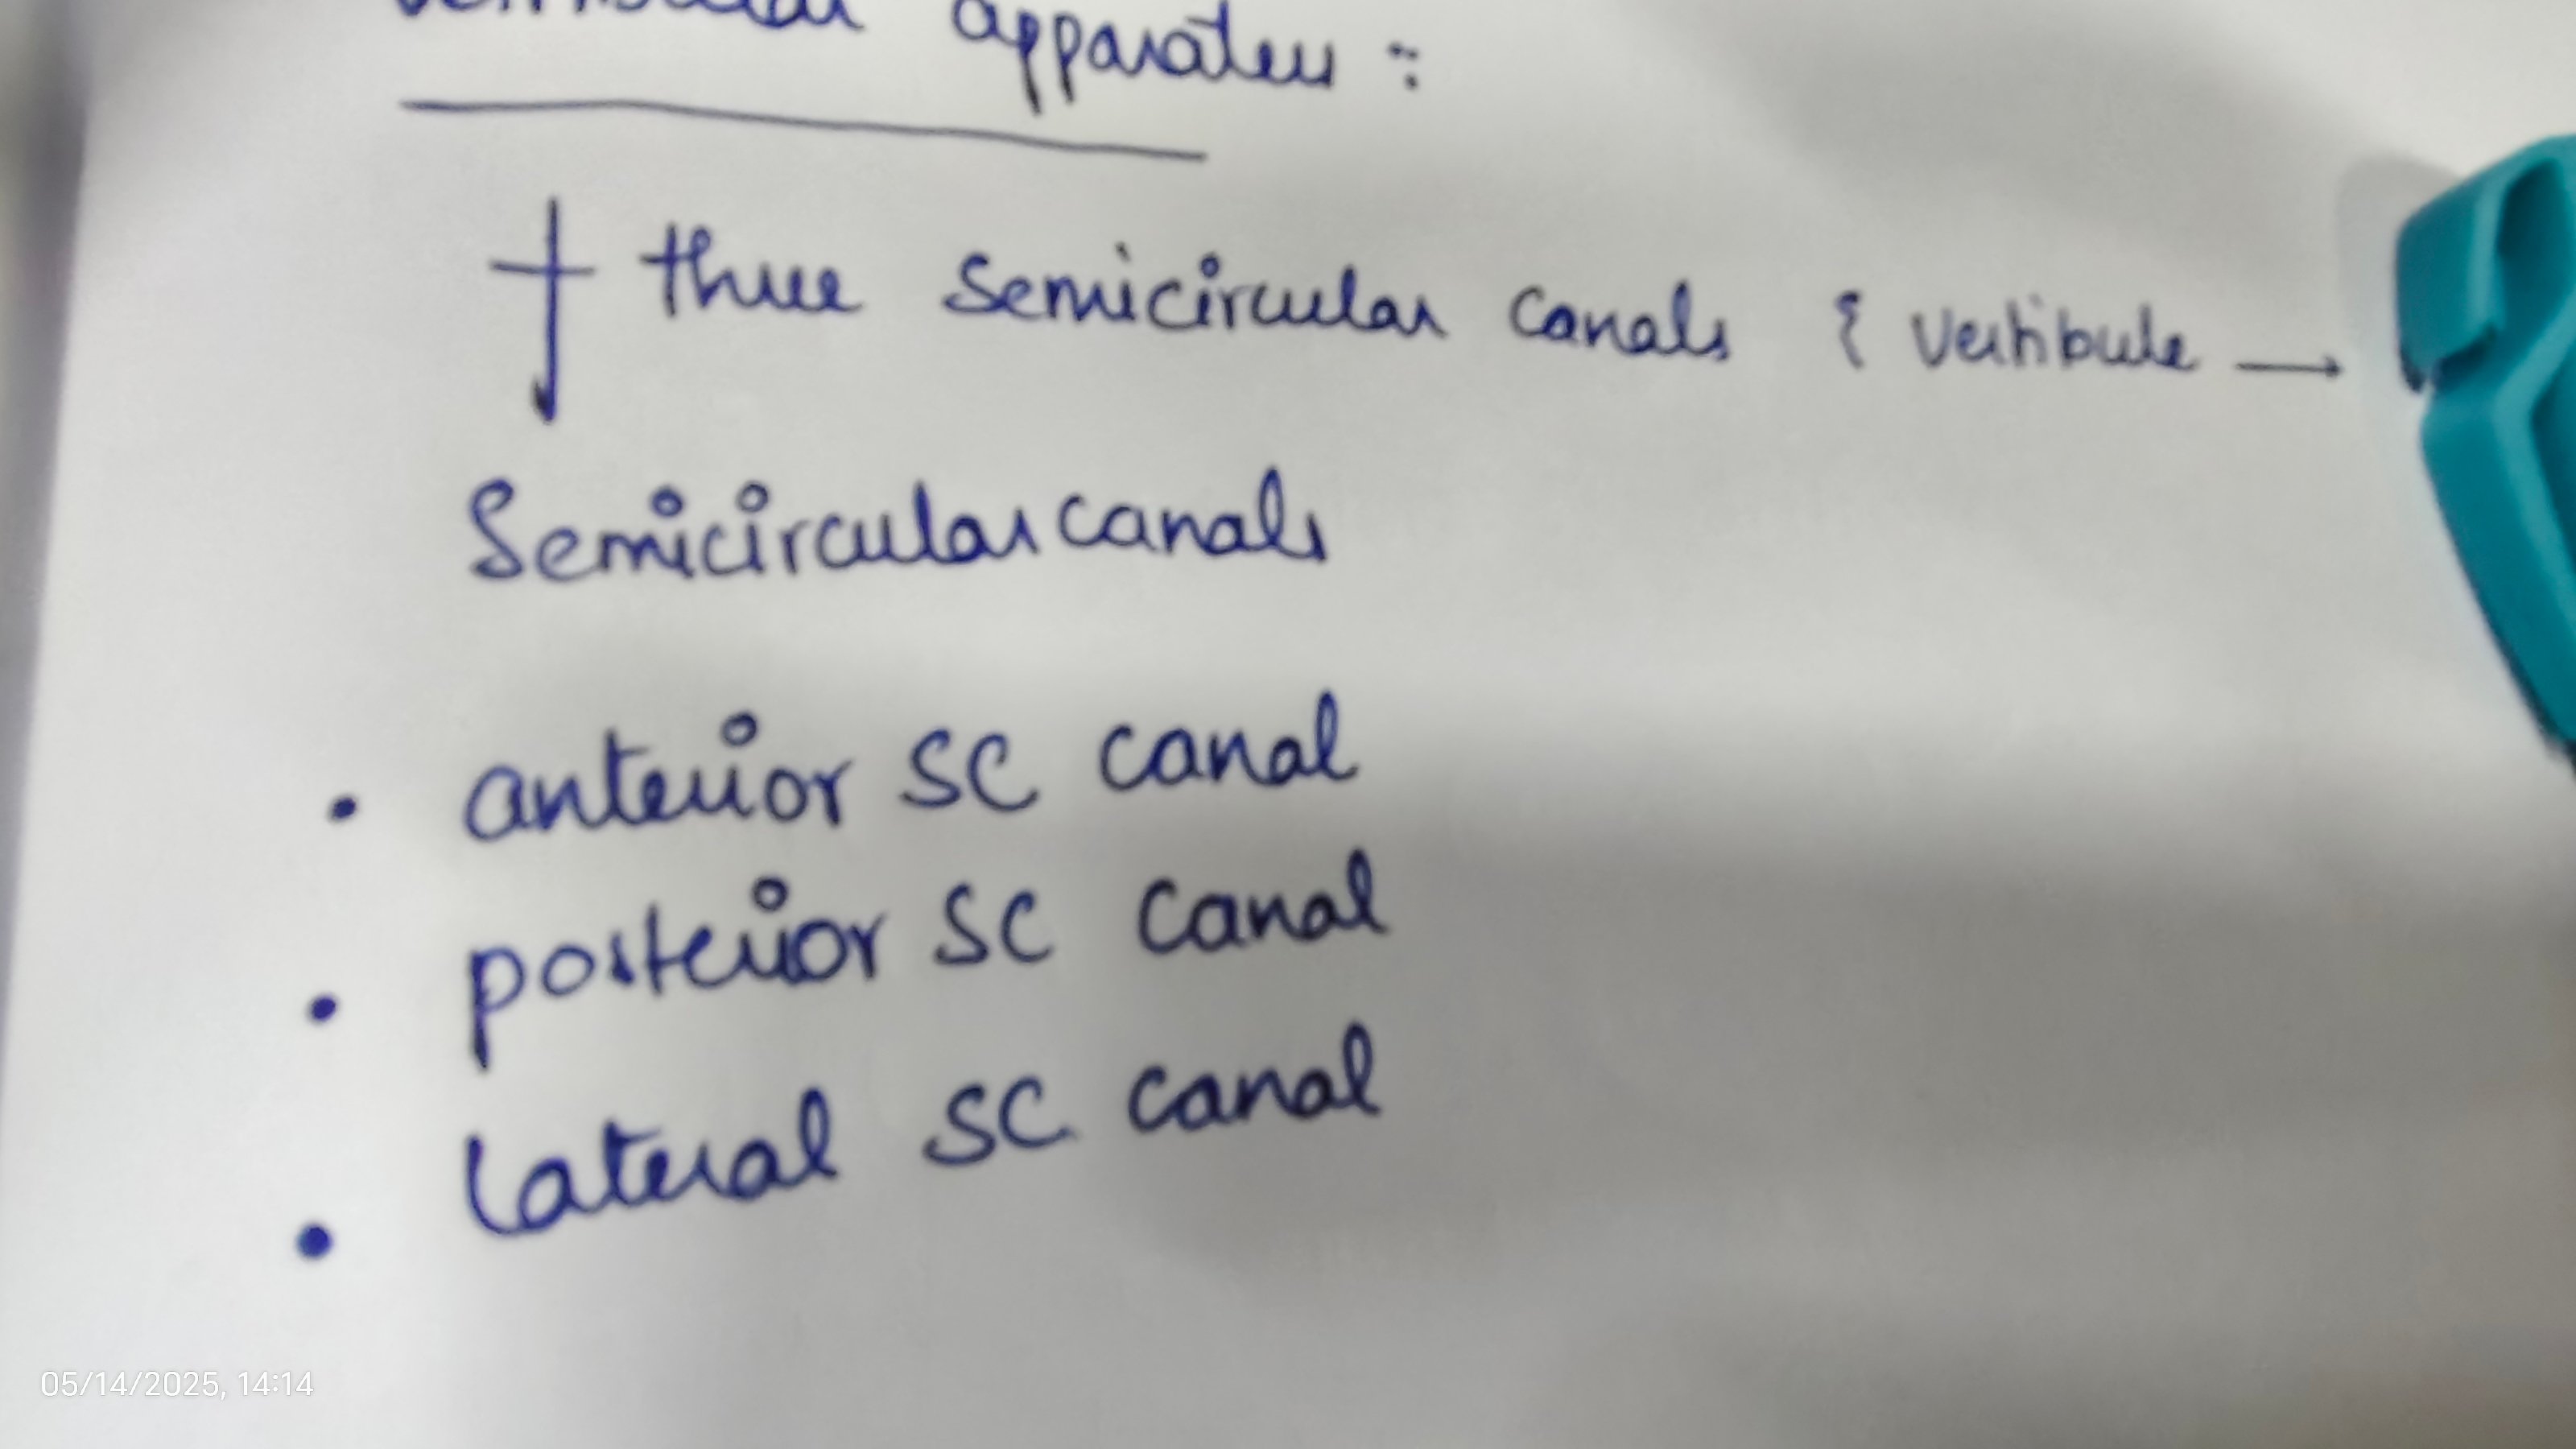 Vestibular apparatus :
three semicircular canals & vestibule →
Semicircular canals
• anterior SC canal
• posterior SC canal
• lateral SC canal
05/14/2025, 14:14